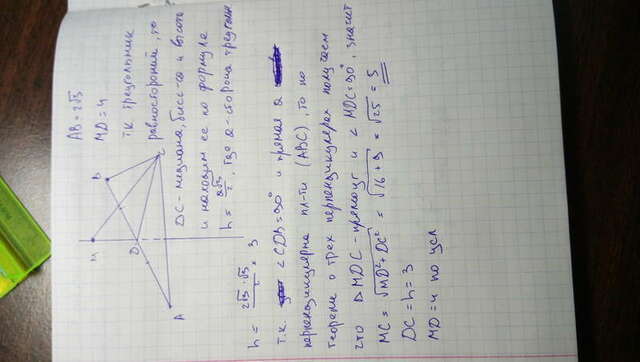 AB = 2√3
MD = 4
т.к. треугольник
равносторонний, то
DC - медиана, бисс-са и высота
и находим её по формуле
h = a√3/2, где a - сторона треугольн
M
B
C
D
A
h = 2√3 · √3 / 2 = 3
т.к. ∠CDB = 90° и прямая a
перпендикулярна пл-ти (ABC), то по
теореме о трех перпендикулярах получаем
что △MDC - прямоуг и ∠MDC = 90°, значит
MC = √MD² + DC² = √16 + 9 = √25 = 5
DC = h = 3
MD = 4 по усл